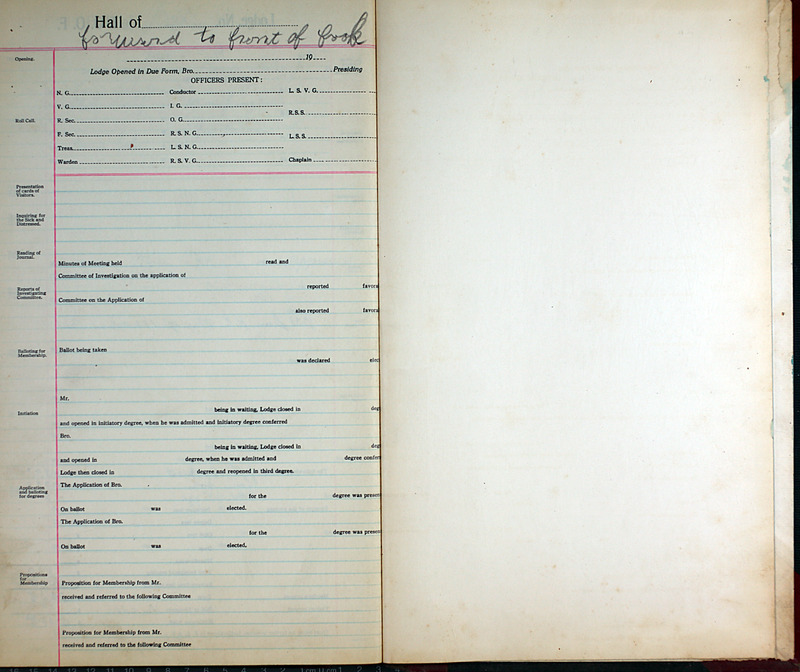 Hall of
forward to front of book
Opening.
19
Lodge Opened in Due Form, Bro. Presiding
OFFICERS PRESENT:
Roll Call.
N. G. Conductor L. S. V. G.
V. G. I. G. R.S.S.
R. Sec. O. G.
F. Sec. R. S. N. G. L. S. S.
Treas. L. S. N. G.
Warden R. S. V. G. Chaplain
Presentation
of cards of
Visitors.
Inquiring for
the Sick and
Distressed.
Reading of
Journal.
Minutes of Meeting held read and
Committee of Investigation on the application of
Reports of
Investigating
Committee.
reported favora
Committee on the Application of
also reported favora
Balloting for
Membership.
Ballot being taken
was declared elec
Mr.
Initiation
being in waiting, Lodge closed in deg
and opened in initiatory degree, when he was admitted and initiatory degree conferred
Bro.
being in waiting, Lodge closed in deg
and opened in degree, when he was admitted and degree confer
Lodge then closed in degree and reopened in third degree.
Application
and balloting
for degrees
The Application of Bro.
for the degree was presen
On ballot was elected.
The Application of Bro.
for the degree was presen
On ballot was elected.
Propositions
for
Membership
Proposition for Membership from Mr.
received and referred to the following Committee
Proposition for Membership from Mr.
received and referred to the following Committee